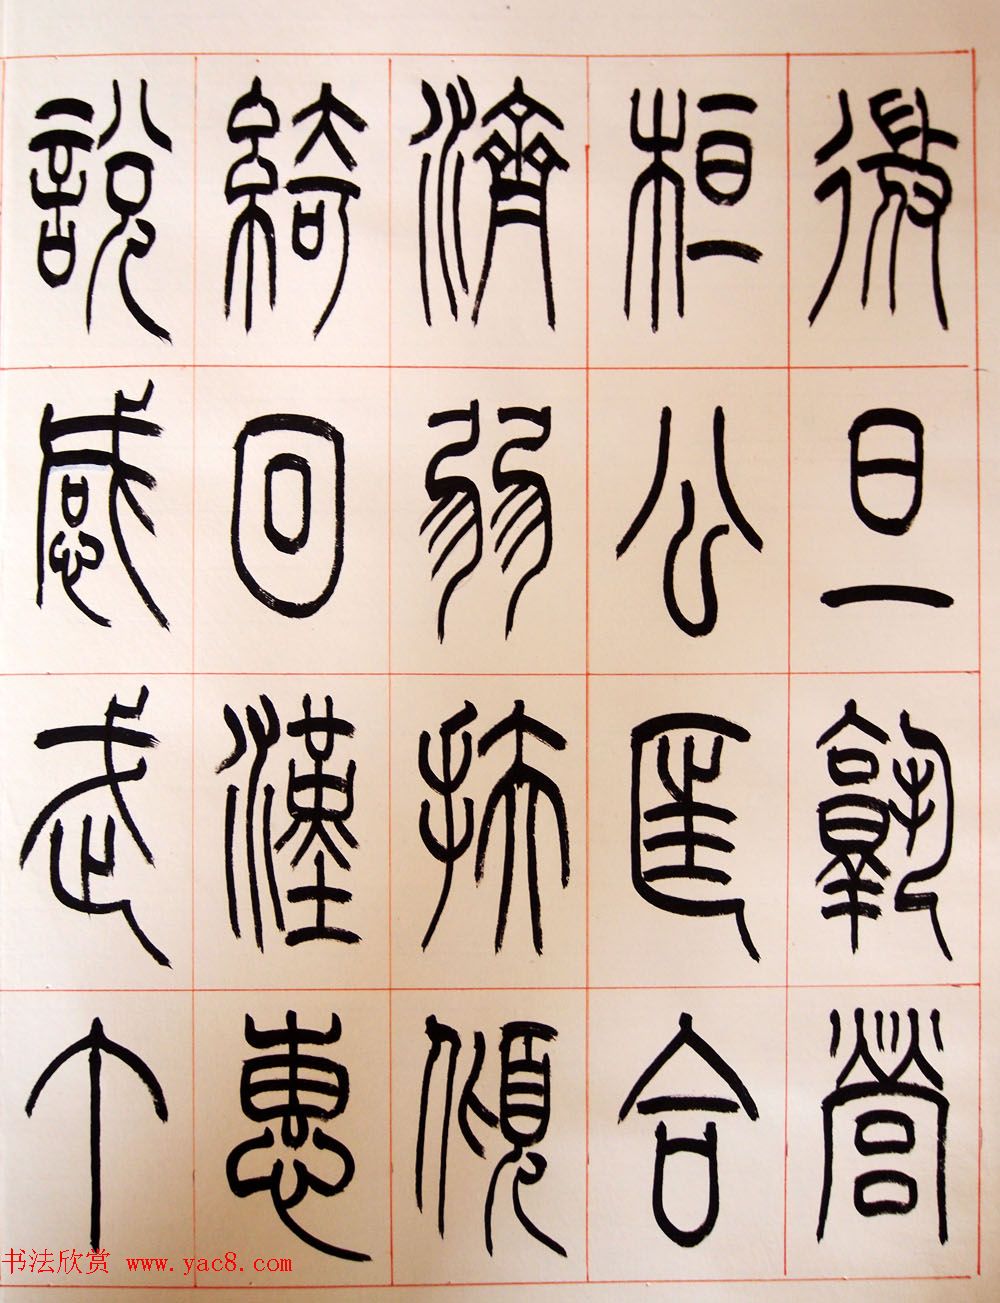 微旦孰營
桓公匡合
濟弱扶傾
綺回漢惠
說感武丁
书法欣赏 www.yac8.com